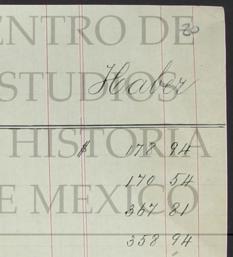 ENTRO DE
20
ESTUDIOS
Haber
HISTORIA
$ 178 94
170 54
E MEXICO
367 81
358 94